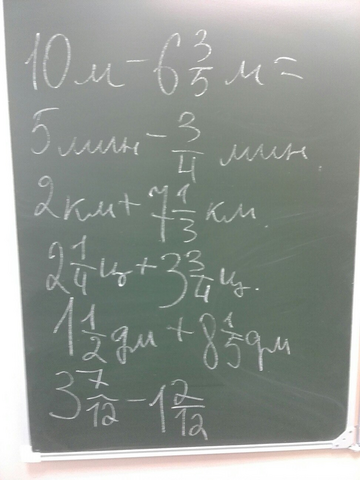 10 м − 6 3/5 м =
5 мин − 3/4 мин.
2 км + 7 1/3 км
2 1/4 ц + 3 3/4 ц.
1 1/2 дм + 8 1/5 дм
3 7/12 − 1 2/12